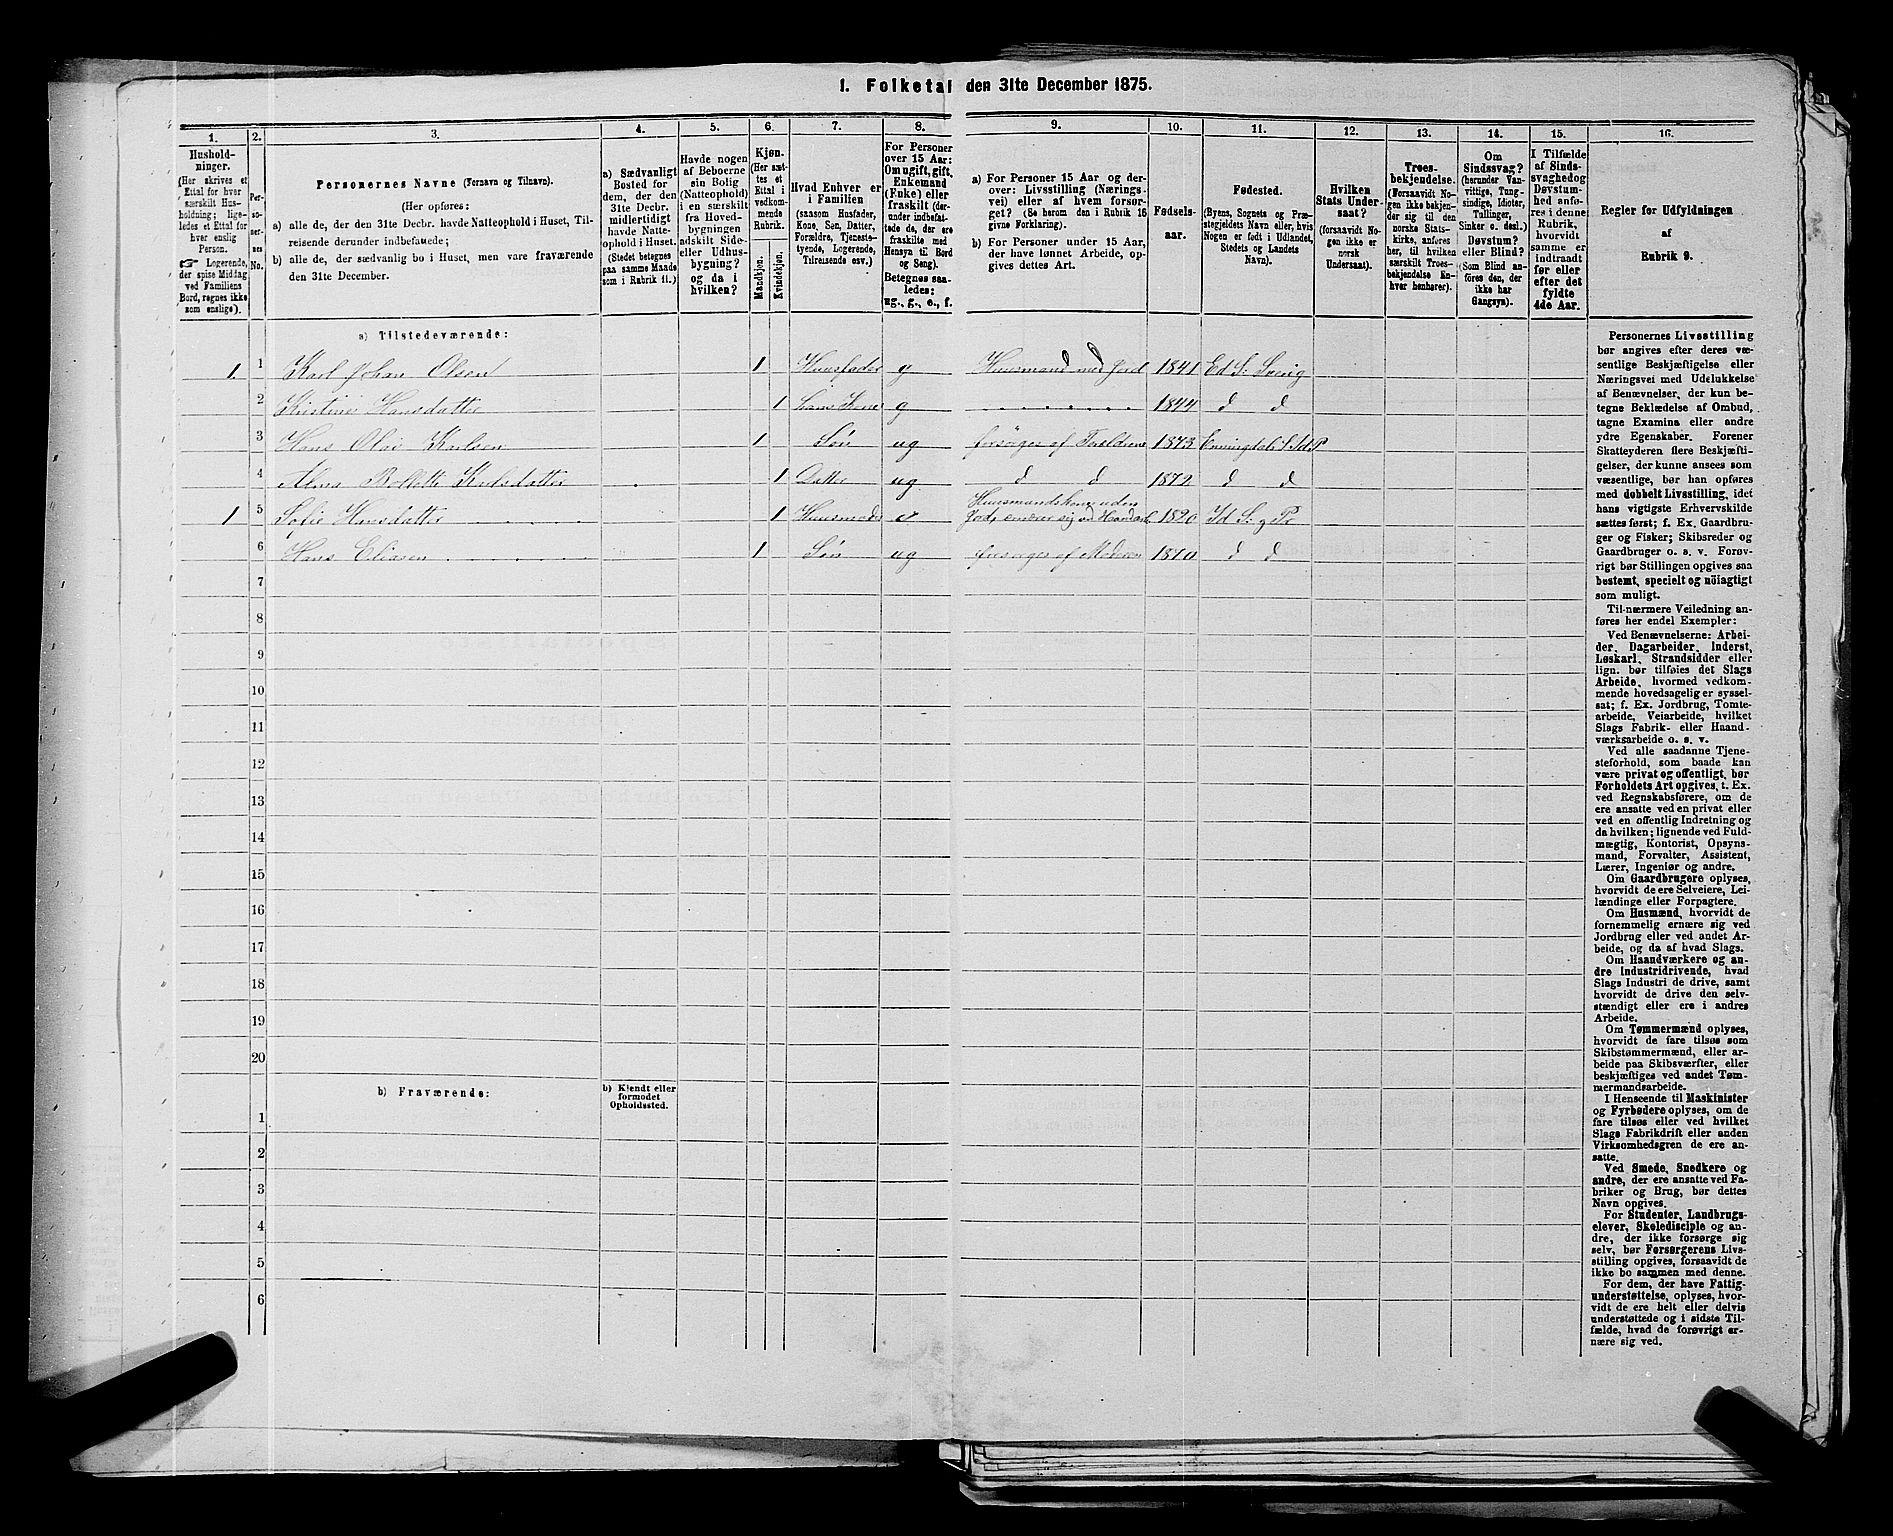 1. Folketal den 31te December 1875.
1.
2.
3.
4.
5.
6.
7.
8.
9.
10.
11.
12.
13.
14.
15.
16.
Hushold-
ninger.
(Her skrives et
Ettal for hver
særskilt Hus-
holdning; lige-
ledes et Ettal for
hver enslig
Person.
☞ Logerende,
der spise Middag
ved Familiens
Bord, regnes ikke
som enslige).
Per-
so-
ner-
nes
No.
Personernes Navne (Fornavn og Tilnavn).
(Her opføres:
a) alle de, der den 31te Decbr. havde Natteophold i Huset, Til-
reisende derunder indbefattede;
b) alle de, der sædvanlig bo i Huset, men vare fraværende
den 31te December.
a) Sædvanligt
Bosted for
dem, der den
31te Decbr.
midlertidigt
havde Natte-
ophold i Huset.
(Stedet betegnes
paa samme Maade
som i Rubrik 11.)
Havde nogen
af Beboerne
sin Bolig
(Natteophold)
i en særskilt
fra Hoved-
bygningen
adskilt Side-
eller Udhus-
bygning?
og da i
hvilken?
Kjøn.
(Her sæt-
tes et
Ettal i
vedkom-
mende
Rubrik.
Mandkjøn.
Kvindekjøn.
Hvad Enhver er
i Familien
(saasom Husfader,
Kone, Søn, Datter,
Forældre, Tjeneste-
tyende, Logerende,
Tilreisende osv.)
For Personer
over 15 Aar:
Om ugift, gift,
Enkemand
(Enke) eller
fraskilt (der-
under indbefat-
tede de, der ere
fraskilte med
Hensyn til Bord
og Seng).
Betegnes saa-
ledes:
ug., g., e., f.
a) For Personer 15 Aar og der-
over: Livsstilling (Nærings-
vei) eller af hvem forsør-
get? (Se herom den i Rubrik 16
givne Forklaring).
b) For Personer under 15 Aar,
der have lønnet Arbeide, op-
gives dettes Art.
Fødsels-
aar.
Fødested.
(Byens, Sognets og Præ-
stegjeldets Navn eller, hvis
Nogen er født i Udlandet,
Stedets og Landets
Navn).
Hvilken
Stats Under-
saat?
(forsaavidt No-
gen ikke er
norsk
Undersaat).
Troes-
bekjendelse.
(Forsaavidt No-
gen ikke bekjen-
der sig til den
norske Stats-
kirke, anføres
her, til hvilken
særskilt Troes-
bekjendelse En-
hver henhører).
Om
Sindssvag?
(herunder Van-
vittige, Tung-
sindige, Idioter,
Tullinger,
Sinker o. desl.)
Døvstum?
eller Blind?
(Som Blind an-
føres den, der
ikke har
Gangsyn).
I Tilfælde
af Sinds-
svaghed og
Døvstum-
hed anfø-
res i denne
Rubrik,
hvorvidt
samme er
indtraadt
før eller
efter det
fyldte
4de Aar.
Regler for Udfyldningen
af
Rubrik 9.
a) Tilstedeværende:
1. 1 Karl Johan Olsen 1 Huusfader g Huusmand med Jord 1841 Ed S. Sverig
2 Kristine Hansdatter 1 hans Kone g 1844 d d
3 Hans Olai Karlsen 1 Søn ug forsørges af Forældrene 1873 Enningdals S. Id P
4 Alma Bollette Karlsdatter 1 Datter ug d d 1872 d d
1 5 Sofie Hansdatter 1 Huusmoder e Huusmandskone uden
Jord, ernærer sig ved Haandarb. 1820 Id S. g Pr
6 Hans Eliasen 1 Søn ug forsørges af Moderen 1870 d d
7
8
9
10
11
12
13
14
15
16
17
18
19
20
b) Fraværende:
b) Kjendt eller
formodet
Opholdssted.
1
2
3
4
5
6
Personernes Livsstilling
bør angives efter deres væ-
sentlige Beskjæftigelse eller
Næringsvei med Udelukkelse
af Benævnelser, der kun be-
tegne Beklædelse af Ombud,
tagne Examina eller andre
ydre Egenskaber. Forener
Skatteyderen flere Beskjæfti-
gelser, der kunne ansees som
væsentlige, bør han opføres
med dobbelt Livsstilling, idet
hans vigtigste Erhvervskilde
sættes først; f. Ex. Gaardbru-
ger og Fisker; Skibsreder og
Gaardbruger o. s. v. Forøv-
rigt bør Stillingen opgives saa
bestemt, specielt og nøiagtigt
som muligt.
Til nærmere Veiledning an-
føres her endel Exempler:
Ved Benævnelserne: Arbei-
der, Dagarbeider, Inderst,
Løskarl, Strandsidder eller
lign. bør tilføies det Slags
Arbeide, hvormed vedkom-
mende hovedsagelig er syssel-
sat; f. Ex. Jordbrug, Tomte-
arbeide, Veiarbeide, hvilket
Slags Fabrik- eller Haand-
værksarbeide o. s. v.
Ved alle saadanne Tjene-
steforhold, som baade kan
være privat og offentligt, bør
Forholdets Art opgives, t. Ex.
ved Regnskabsførere, om de
ere ansatte ved en privat eller
ved en offentlig Indretning og
da hvilken; lignende ved Fuld-
mægtig, Kontorist, Opsyns-
mand, Forvalter, Assistent,
Lærer, Ingeniør og andre.
Om Gaardbrugere oplyses,
hvorvidt de ere Selveiere, Lei-
lændinge eller Forpagtere.
Om Husmænd, hvorvidt de
fornemmelig ernære sig ved
Jordbrug eller ved andet Ar-
beide, og da af hvad Slags.
Om Haandværkere og an-
dre Industridrivende, hvad
Slags Industri de drive, samt
hvorvidt de drive den selv-
stændigt eller ere i andres
Arbeide.
Om Tømmermænd oplyses,
hvorvidt de fare tilsøs som
Skibstømmermænd, eller ar-
beide paa Skibsværfter, eller
beskjæftiges ved andet Tøm-
mermandsarbeide.
I Henseende til Maskinister
og Fyrbødere oplyses, om de
fare tilsøs eller ved hvilket
Slags Fabrikdrift eller anden
Virksomhedsgren de ere an-
satte.
Ved Smede, Snedkere og
andre, der ere ansatte ved Fa-
briker og Brug, bør dettes
Navn opgives.
For Studenter, Landbrugs-
elever, Skoledisciple og an-
dre, der ikke forsørge sig
selv, bør Forsørgerens Livs-
stilling opgives, forsaavidt de
ikke bo sammen med denne.
For dem, der have Fattig-
understøttelse, oplyses, hvor-
vidt de ere helt eller delvis
understøttede og i sidste Til-
fælde, hvad de forøvrigt er-
nære sig ved.